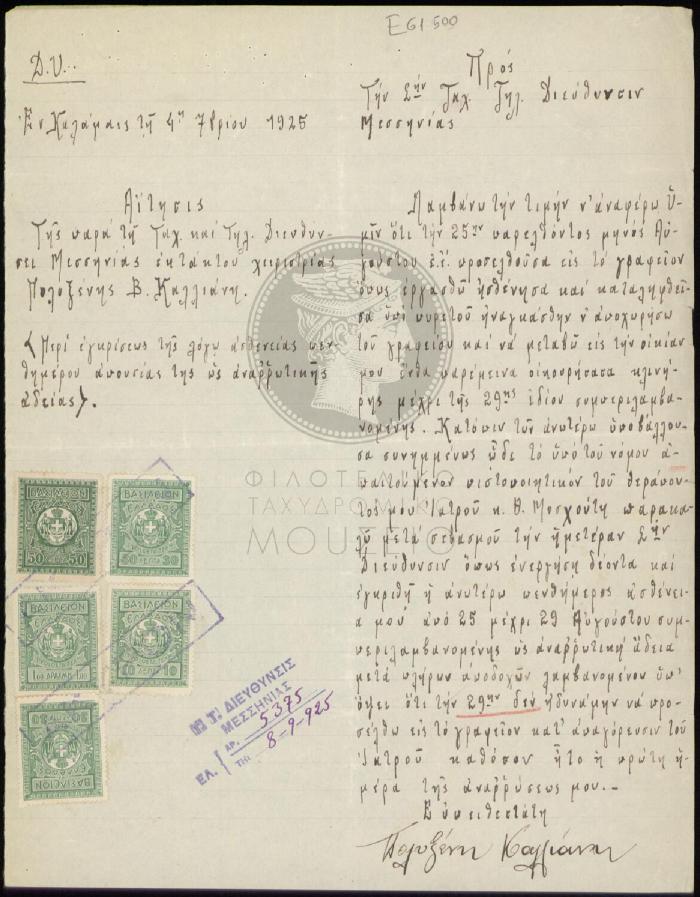 EGI 500
Δ.Υ.
Ἐν Καλάμαις τῇ 4ῃ 7βρίου 1925
Πρός
Τήν Σήν Ταχ. Τηλ. Διεύθυνσιν
Μεσσηνίας
Αἴτησις
Τῆς παρά τῇ Ταχ. καί Τηλ. Διευθύν-
σει Μεσσηνίας ἐκτάκτου χειριστρίας
Πολυξένης Β. Καλλιάνη.
〈Περί ἐγκρίσεως τῆς λόγῳ ἀσθενείας πεν-
θημέρου ἀπουσίας της ὡς ἀναῤῥωτικῆς
ἀδείας〉.
Λαμβάνω τήν τιμήν ν' ἀναφέρω Ὑ-
μῖν ὅτι τήν 25ην παρελθόντος μηνός Αὐ-
γούστου ἐ.ἔ. προσελθοῦσα εἰς τό γραφεῖον
ὅπως ἐργασθῶ ἠσθένησα καί καταληφθεῖ-
σα ὑπό πυρετοῦ ἠναγκάσθην ν' ἀποχωρήσω
τοῦ γραφείου καί νά μεταβῶ εἰς τήν οἰκίαν
μου ἔνθα παρέμεινα οἰκουρήσασα κλινή-
ρης μέχρι τῆς 29ης ἰδίου συμπεριλαμβα-
νομένης. Κατόπιν τῶν ἀνωτέρω ὑποβάλλου-
σα συνημμένως ὧδε τό ὑπό τοῦ νόμου ἀ-
παιτούμενον πιστοποιητικόν τοῦ θεράπον-
τος μου Ἰατροῦ κ. Θ. Μοσχούτη παρακα-
λῶ μετά σεβασμοῦ τήν ἡμετέραν Σήν
Διεύθυνσιν ὅπως ἐνεργήσῃ δέοντα καί
ἐγκριθῇ ἡ ἀνωτέρω πενθήμερος ἀσθένει-
α μου ἀπό 25 μέχρι 29 Αὐγούστου συμ-
περιλαμβανομένης ὡς ἀναῤῥωτική ἄδεια
μετά πλήρων ἀποδοχῶν λαμβανομένου ὑπ'
ὄψει ὅτι τήν 29ην δέν ἠδυνάμην νά προ-
σέλθω εἰς τό γραφεῖον κατ' ἀπαγόρευσιν τοῦ
Ἰατροῦ καθόσον ἦτο ἡ πρώτη ἡ-
μέρα τῆς ἀναῤῥώσεως μου.-
Εὐπειθεστάτη
Πολυξένη Καλλιάνη
ΦΙΛΟΤΕΛΙΚΟ
ΤΑΧΥΔΡΟΜΙΚΟ
ΜΟΥΣΕΙΟ
ΒΑΣΙΛΕΙΟΝ
50 50
ΒΑΣΙΛΕΙΟΝ
30 ΛΕΠΤΑ 30
ΒΑΣΙΛΕΙΟΝ
1 ΔΡΑΧΜΗ 1
ΒΑΣΙΛΕΙΟΝ
10 ΛΕΠΤΑ 10
ΒΑΣΙΛΕΙΟΝ
Τ. Τ. ΔΙΕΥΘΥΝΣΙΣ
ΜΕΣΣΗΝΙΑΣ
ΕΛ. ΑΡ. 5375
ΤΗΙ 8-9-925